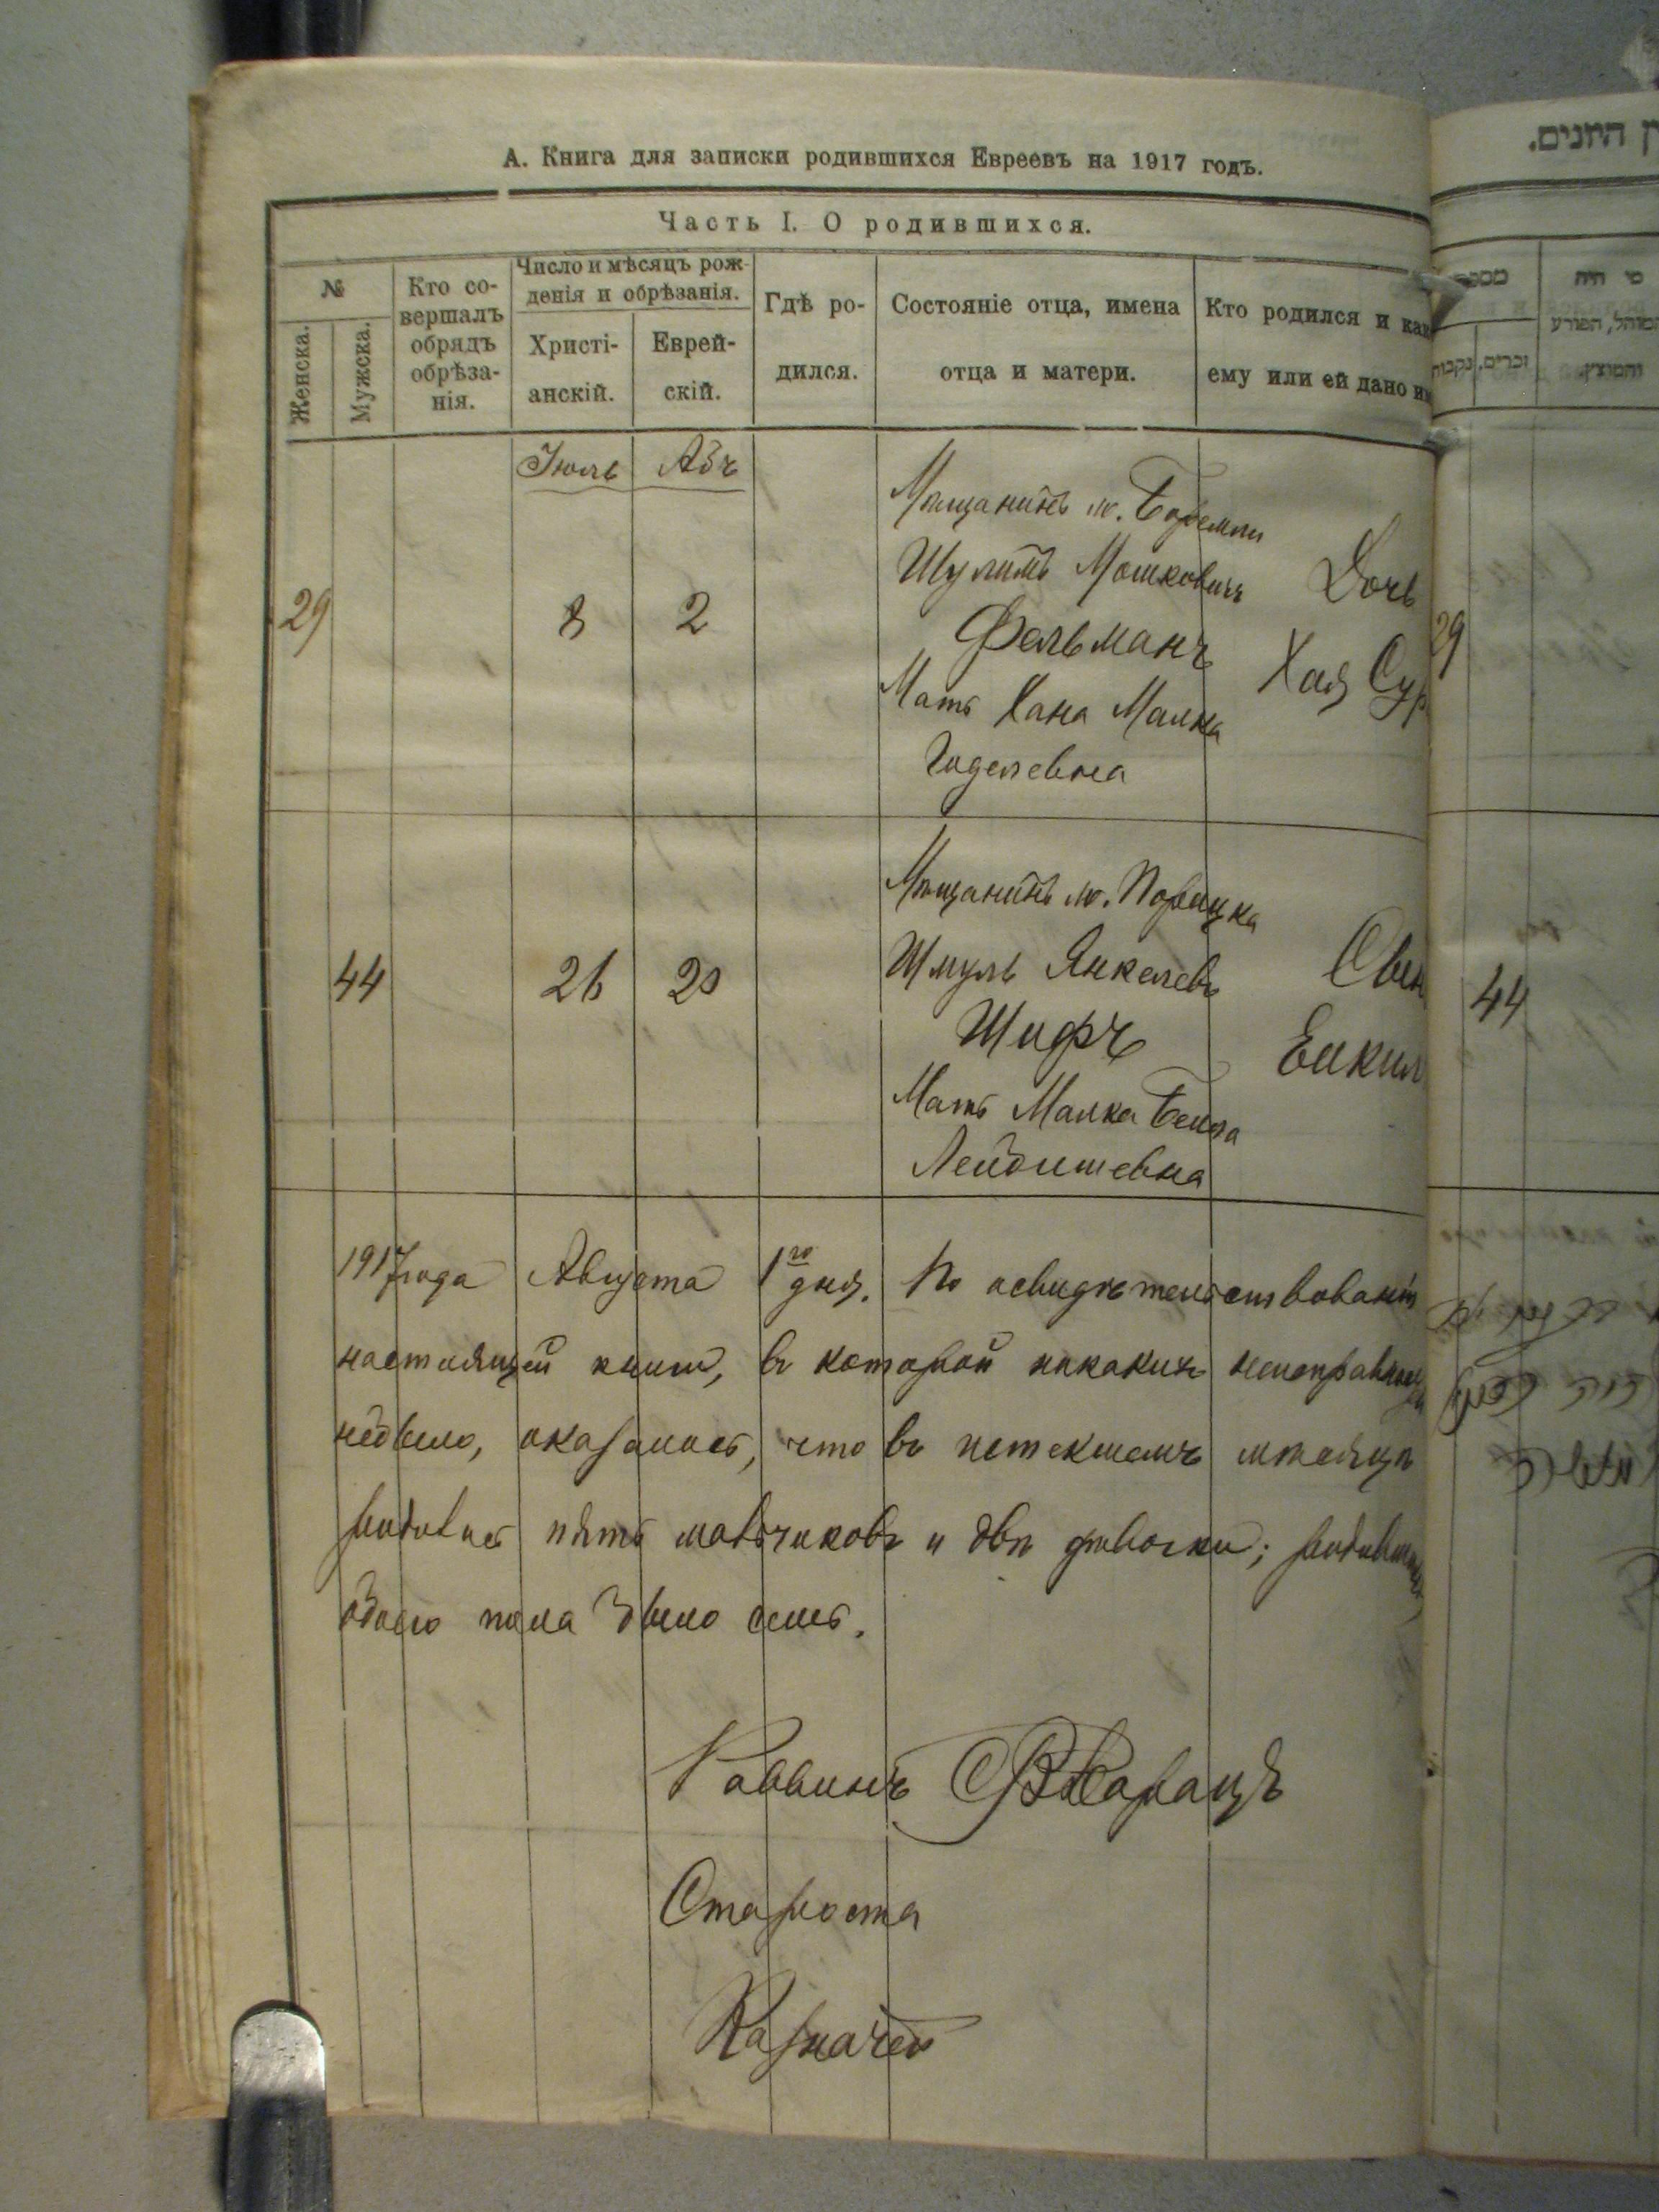 А. Книга для записки родившихся Евреевъ на 1917 годъ.
Часть I. О родившихся.
№
Женска.
Мужска.
Кто со-
вершалъ
обрядъ
обрѣза-
нія.
Число и мѣсяцъ рож-
денія и обрѣзанія.
Христі-
анскій.
Еврей-
скій.
Гдѣ ро-
дился.
Состояніе отца, имена
отца и матери.
Кто родился и как
ему или ей дано им
Іюль Абъ
29 8 2
Мѣщанинъ м. Боремля
Шулимъ Мошковичъ
Фельманъ
Мать Хана Малка
Годелевна
Дочь
Хая Сур
44 26 20
Мѣщанинъ м. Порицка
Шмуль Янкелевъ
Шифъ
Мать Малка Бейла
Лейбишевна
Сын
1917 года Августа 1го дня. По освидѣтельствованіи
настоящей книги, въ которой никакихъ неисправностей
небыло, оказалось, что въ истекшемъ мѣсяцѣ
родилось пять мальчиковъ и двѣ дѣвочки; родившихся
обоего пола было семь.
Раввинъ
Староста
Казначей
29
44